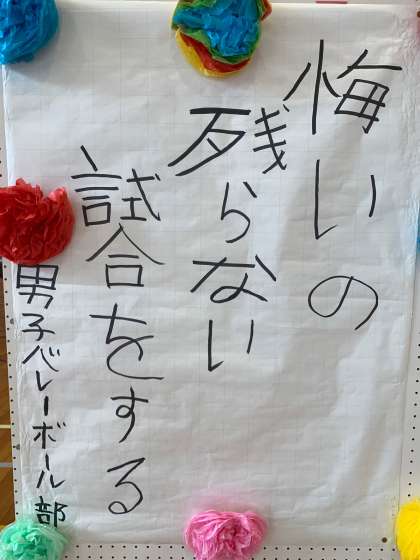 悔いの
残らない
試合をする
男子バレーボール部